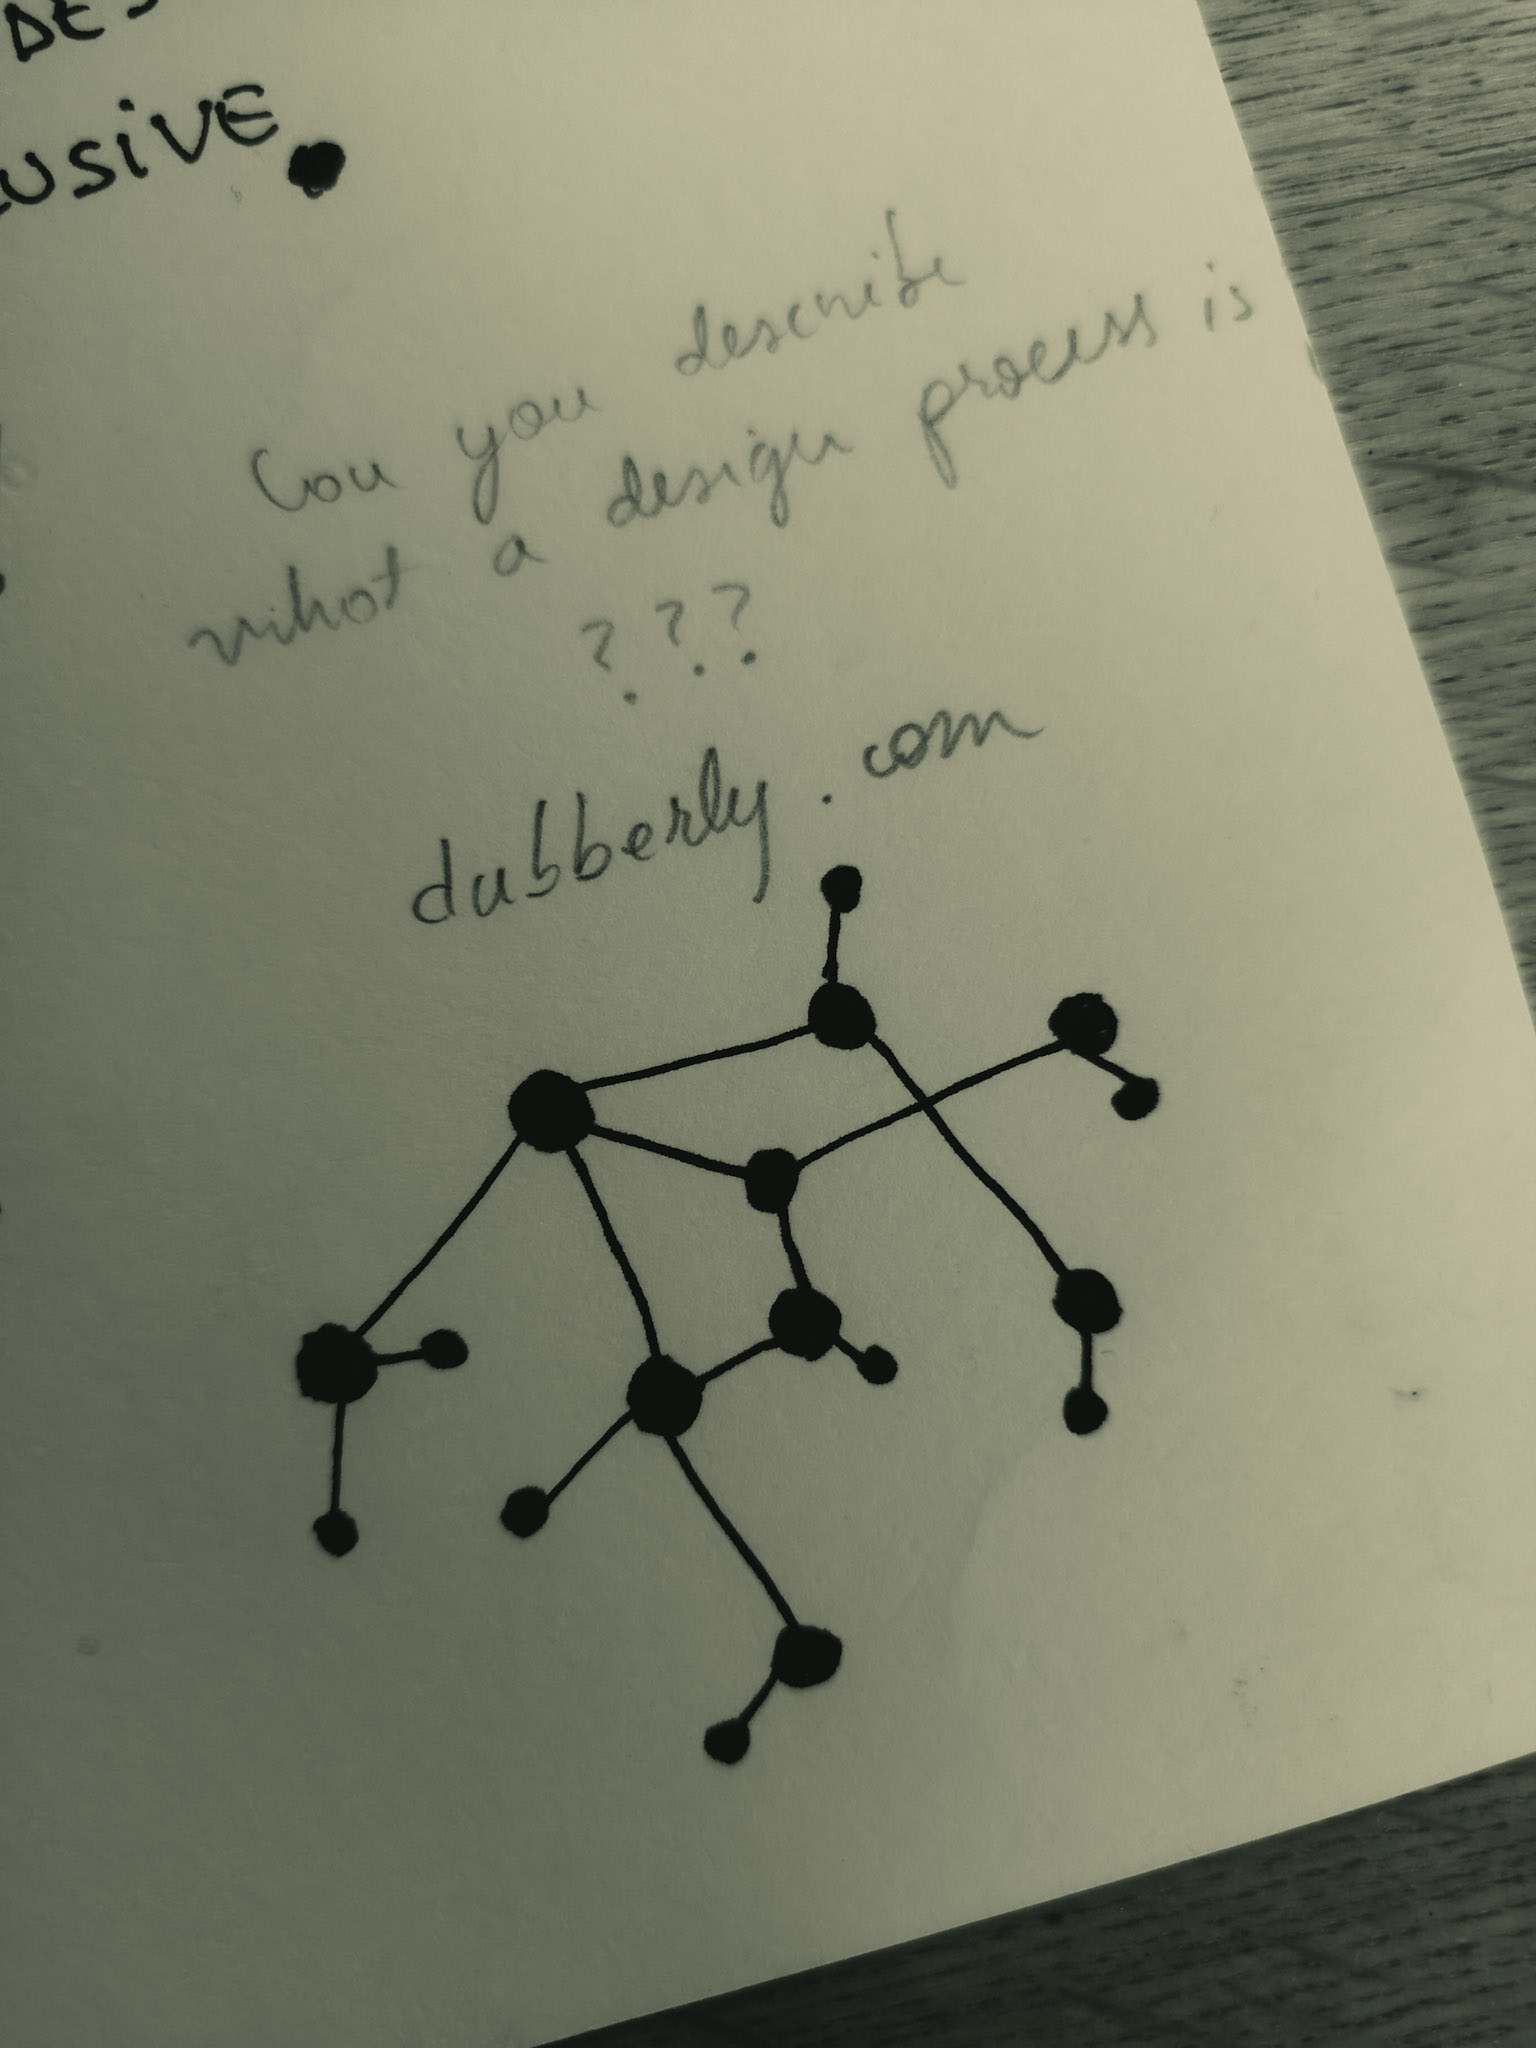 DES
LUSiVE
Can you describe
what a design process is
???
dubberly.com